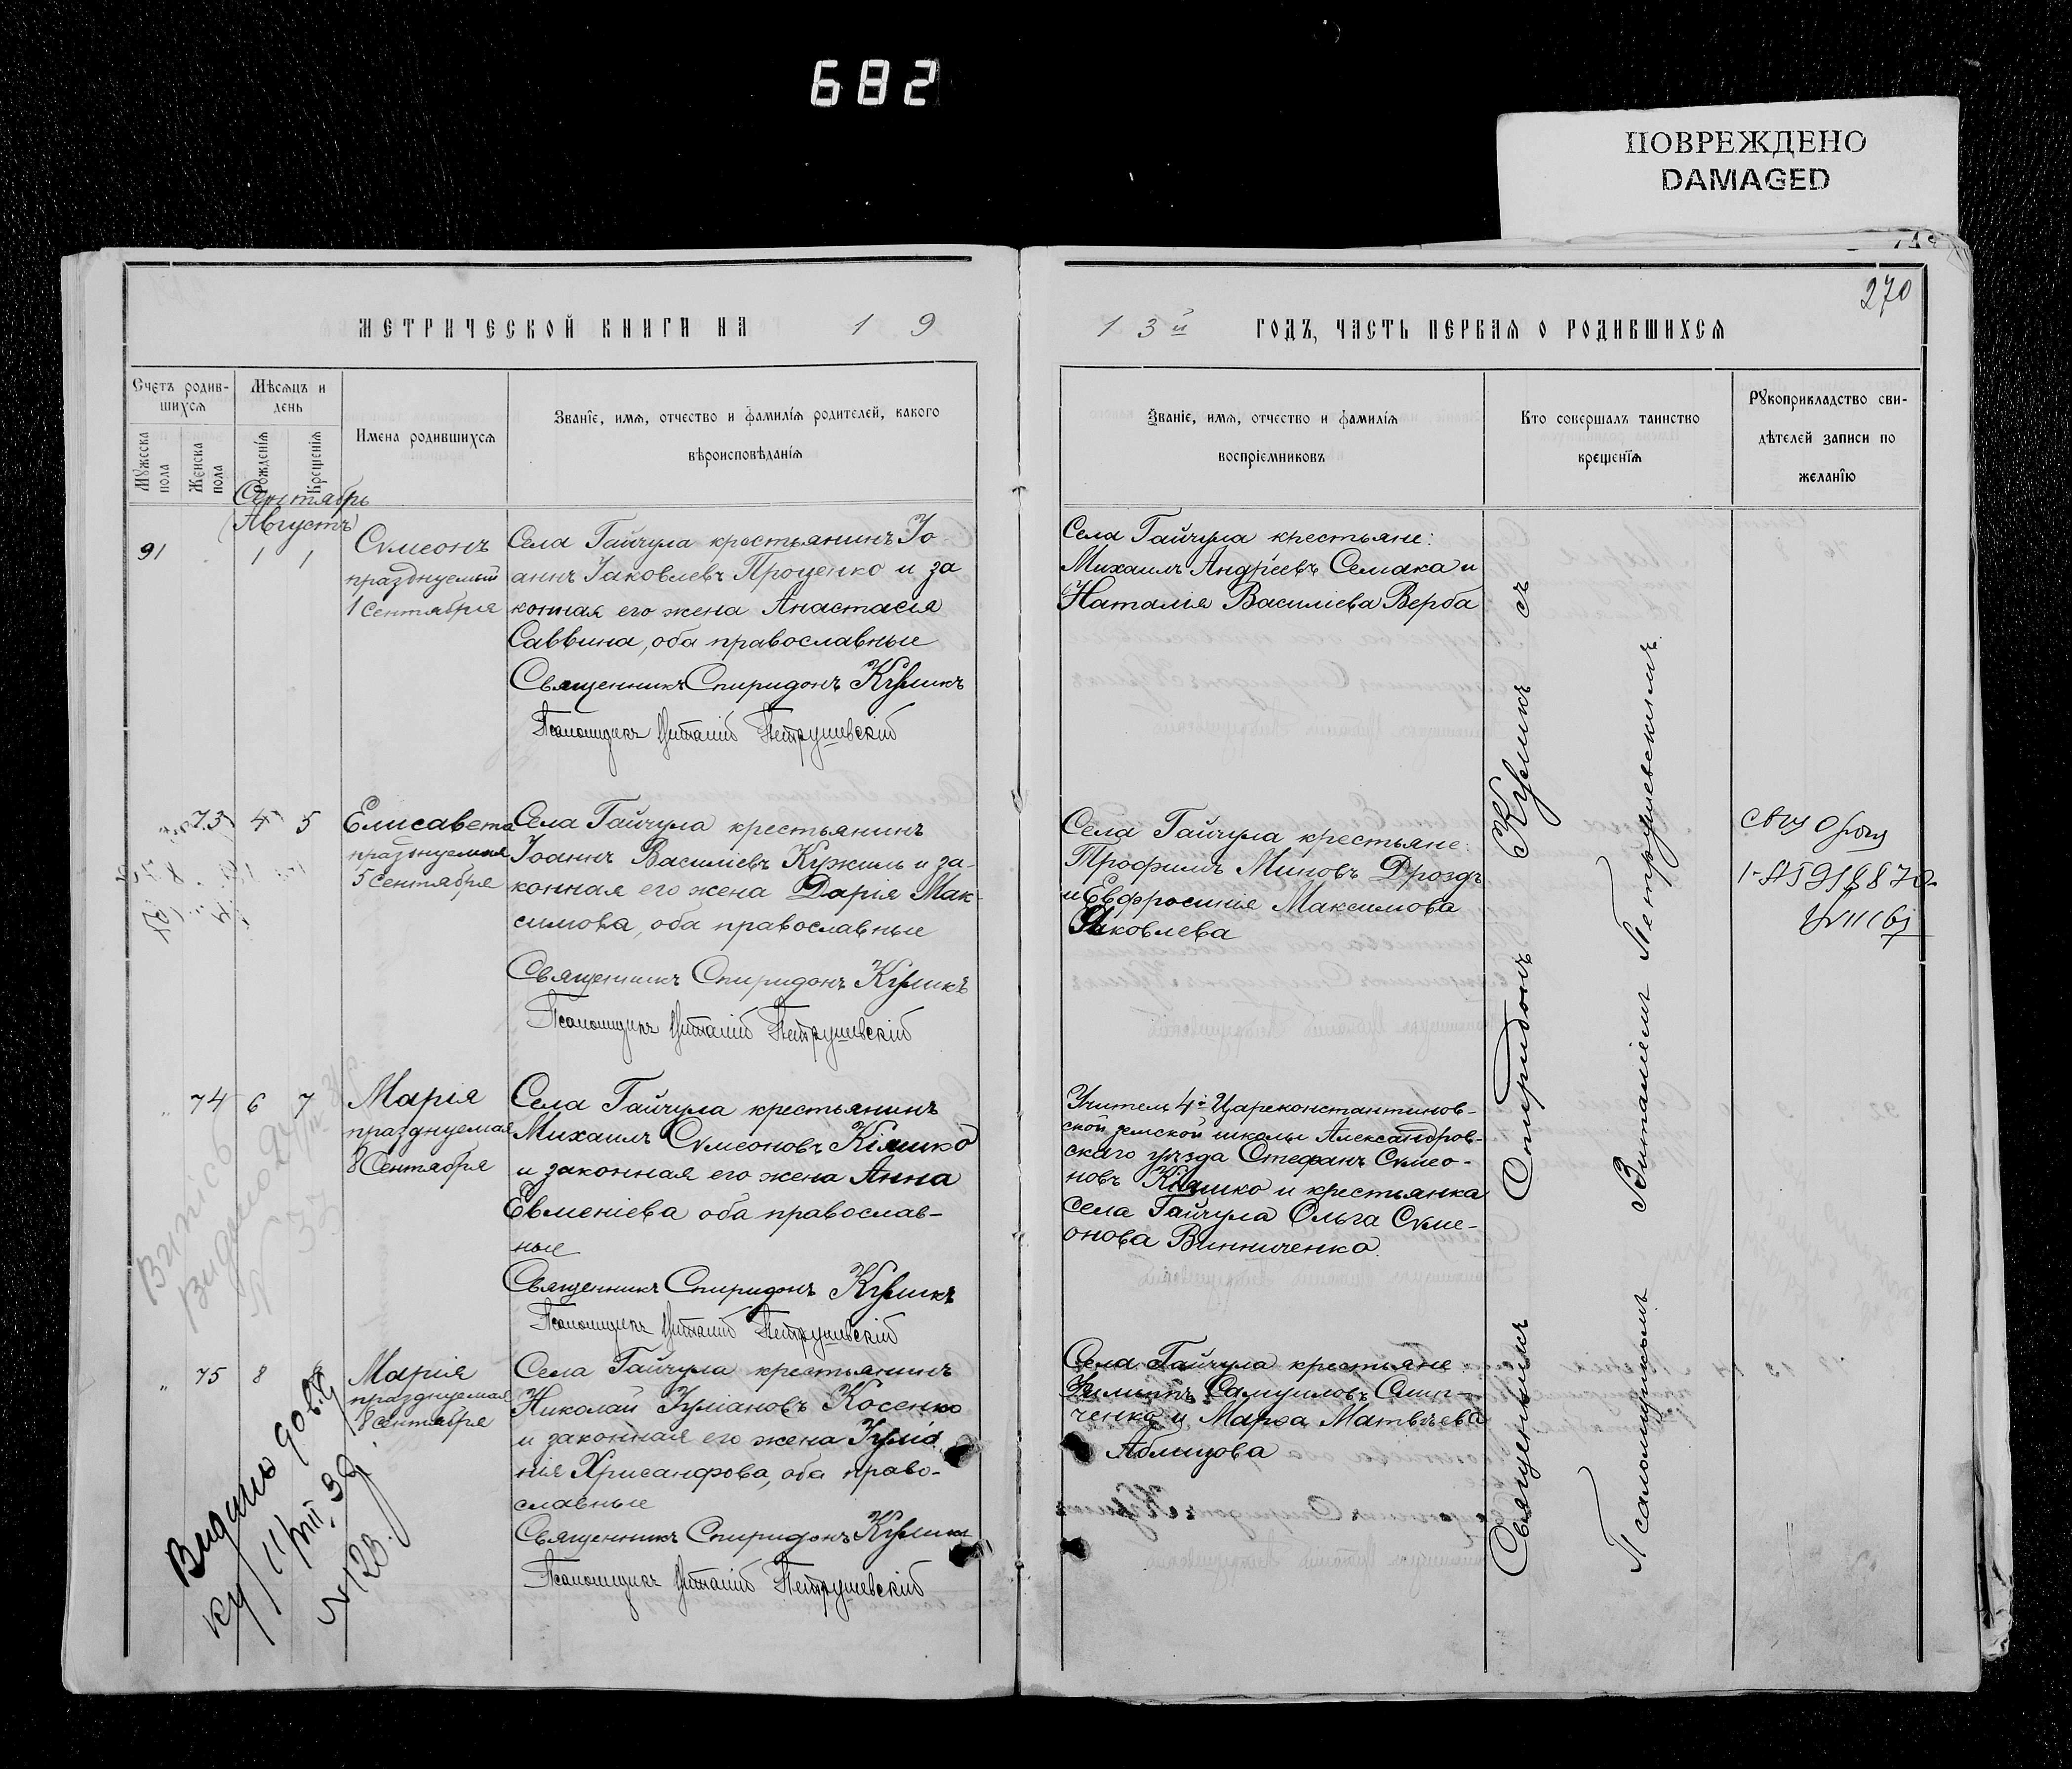 682
ПОВРЕЖДЕНО
DAMAGED
270
МЕТРИЧЕСКОЙ КНИГИ НА 19
13й ГОДЪ, ЧАСТЬ ПЕРВАЯ О РОДИВШИХСЯ
Счетъ родив-
шихся
Мужеска пола
Женска пола
Мѣсяцъ и
день
Рожденія
Крещенія
Имена родившихся
Званіе, имя, отчество и фамилія родителей, какого
вѣроисповѣданія
Званіе, имя, отчество и фамилія
воспріемниковъ
Кто совершалъ таинство
крещенія
Рукоприкладство сви-
дѣтелей записи по
желанію
Сентябрь
(Августъ)
91 1 1
Сѵмеонъ
празднуемый
1 Сентября
Села Гайчула крестьянинъ Іо
аннъ Іаковлевъ Проценко и за
конная его жена Анастасія
Саввина, оба православные
Священникъ Спиридонъ Куликъ
Псаломщикъ Виталій Петрушевскій
Села Гайчула крестьяне:
Михаилъ Андреевъ Семака и
Наталія Василіева Верба
73 4 5
Елисавета
празднуемая
5 Сентября
Села Гайчула крестьянинъ
Іоаннъ Василіевъ Кужиль и за-
конная его жена Дарія Мак-
симова, оба православные
Священникъ Спиридонъ Куликъ
Псаломщикъ Виталій Петрушевскій
Села Гайчула крестьяне:
Трофимъ Миновъ Дроздъ
и Евфросинія Максимова
Яковлева
74 6 7
Марія
празднуемая
8 Сентября
Села Гайчула крестьянинъ
Михаилъ Сѵмеоновъ Кіяшко
и законная его жена Анна
Евменіева оба православ-
ные
Священникъ Спиридонъ Куликъ
Псаломщикъ Виталій Петрушевскій
Учитель 4й Цареконстантинов-
ской земской школы Александров-
скаго уѣзда Стефанъ Сѵмео-
новъ Кіяшко и крестьянка
села Гайчула Ольга Сѵме-
онова Винниченко.
75 8
Марія
празднуемая
8 Сентября
Села Гайчула крестьянинъ
Николай Іуліановъ Косенко
и законная его жена Іуліа
нія Хрисанфова, оба право-
славные
Священникъ Спиридонъ Куликъ
Псаломщикъ Виталій Петрушевскій
Села Гайчула крестьяне
Самуиловъ
ченко и Марѳа Матвѣева
Священникъ Спиридонъ Куликъ съ
Псаломщикомъ Виталіемъ Петрушевскимъ.
Видано довід
ку 11/VIII 39 р.
№ 123.